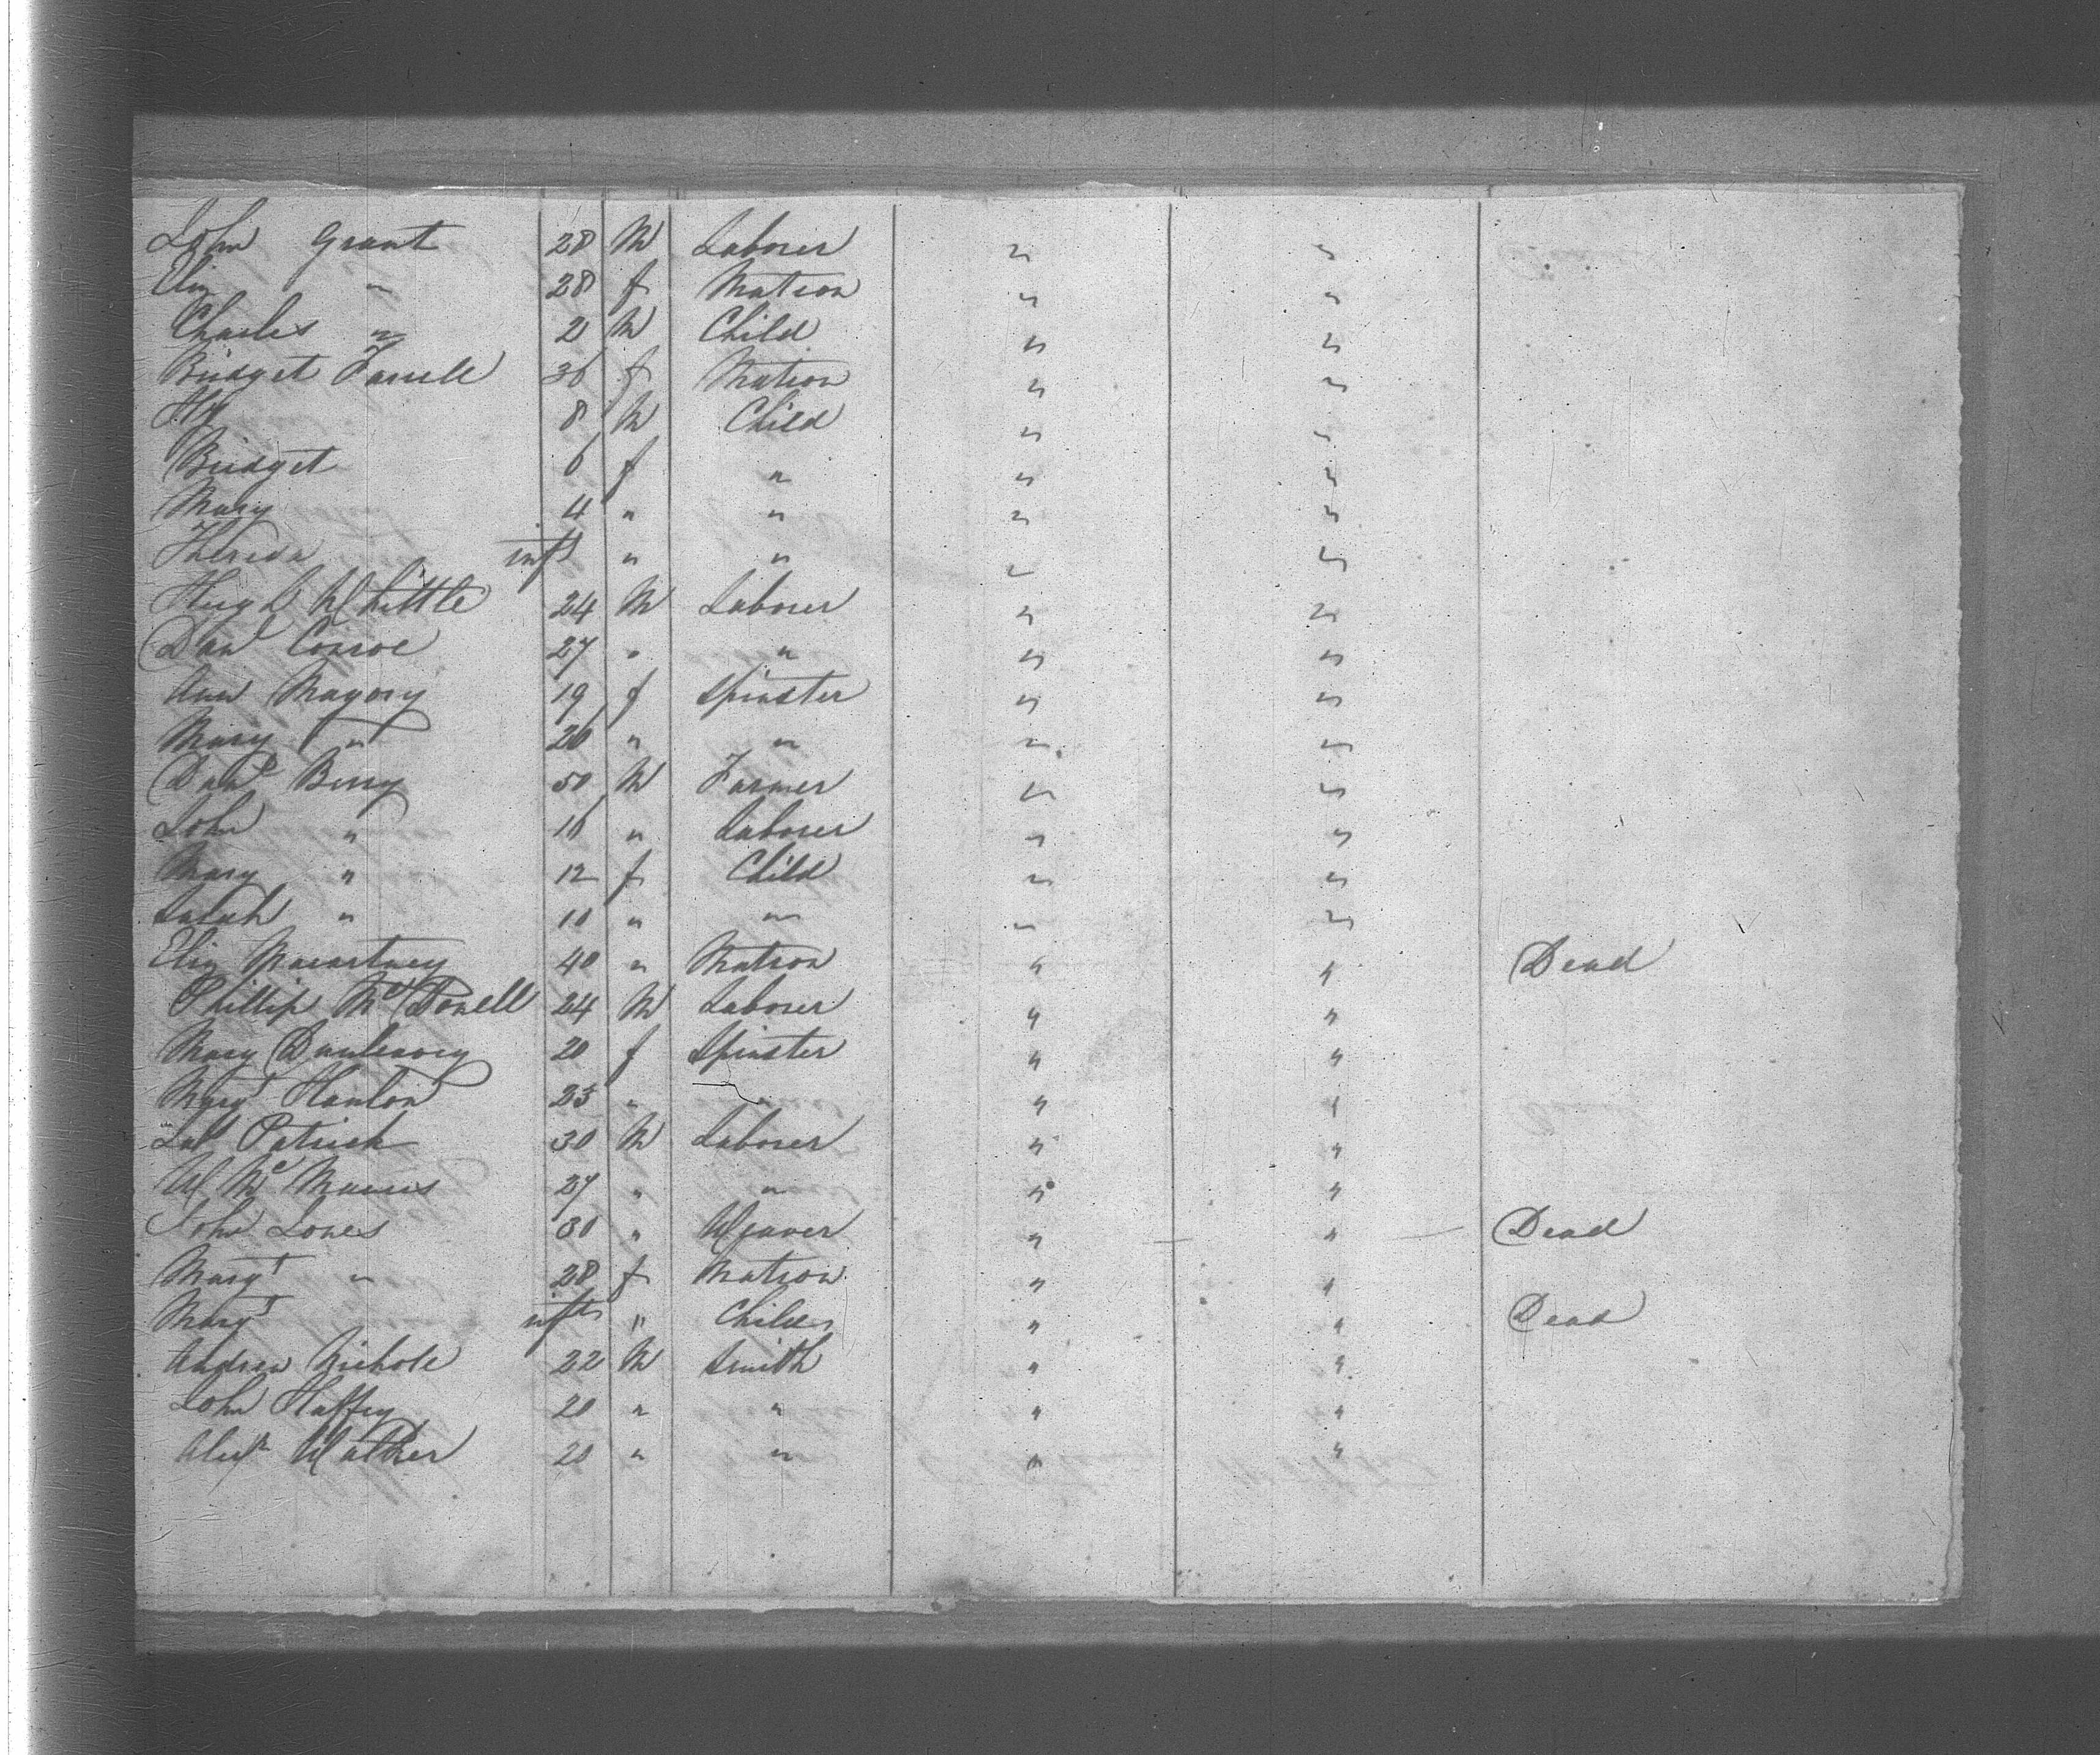 John Grant 28 M Laborer " "
Eliz " 28 f Matron " "
Charles " 2 M Child " "
Bridget Farrell 36 f Matron " "
Hy 8 M Child " "
Bridget 6 f " " "
Mary 4 " " " "
Theresa inft " " " "
Hugh Whittle 24 M Laborer " "
Danl Conroe 27 " " " "
Ann Magory 19 f Spinster " "
Mary " 26 " " " "
Danl Berry 50 M Farmer " "
John " 16 " Laborer " "
Mary " 12 f Child " "
Sarah " 10 " " " "
Eliz Macartney 40 " Matron " " Dead
Phillip Mc Dowell 24 M Laborer " "
Mary Dunleavey 20 f Spinster " "
Margt Hanlon 25 " " " "
Patrick 30 M Laborer " "
W Mc Manus 27 " " " "
John Jones 30 " Weaver " " Dead
Margt " 28 f Matron " "
Margt inft " Child " " Dead
Andrew Nichole 22 M Smith " "
John Haffey 20 " " " "
Alexr Walker 20 " " " "